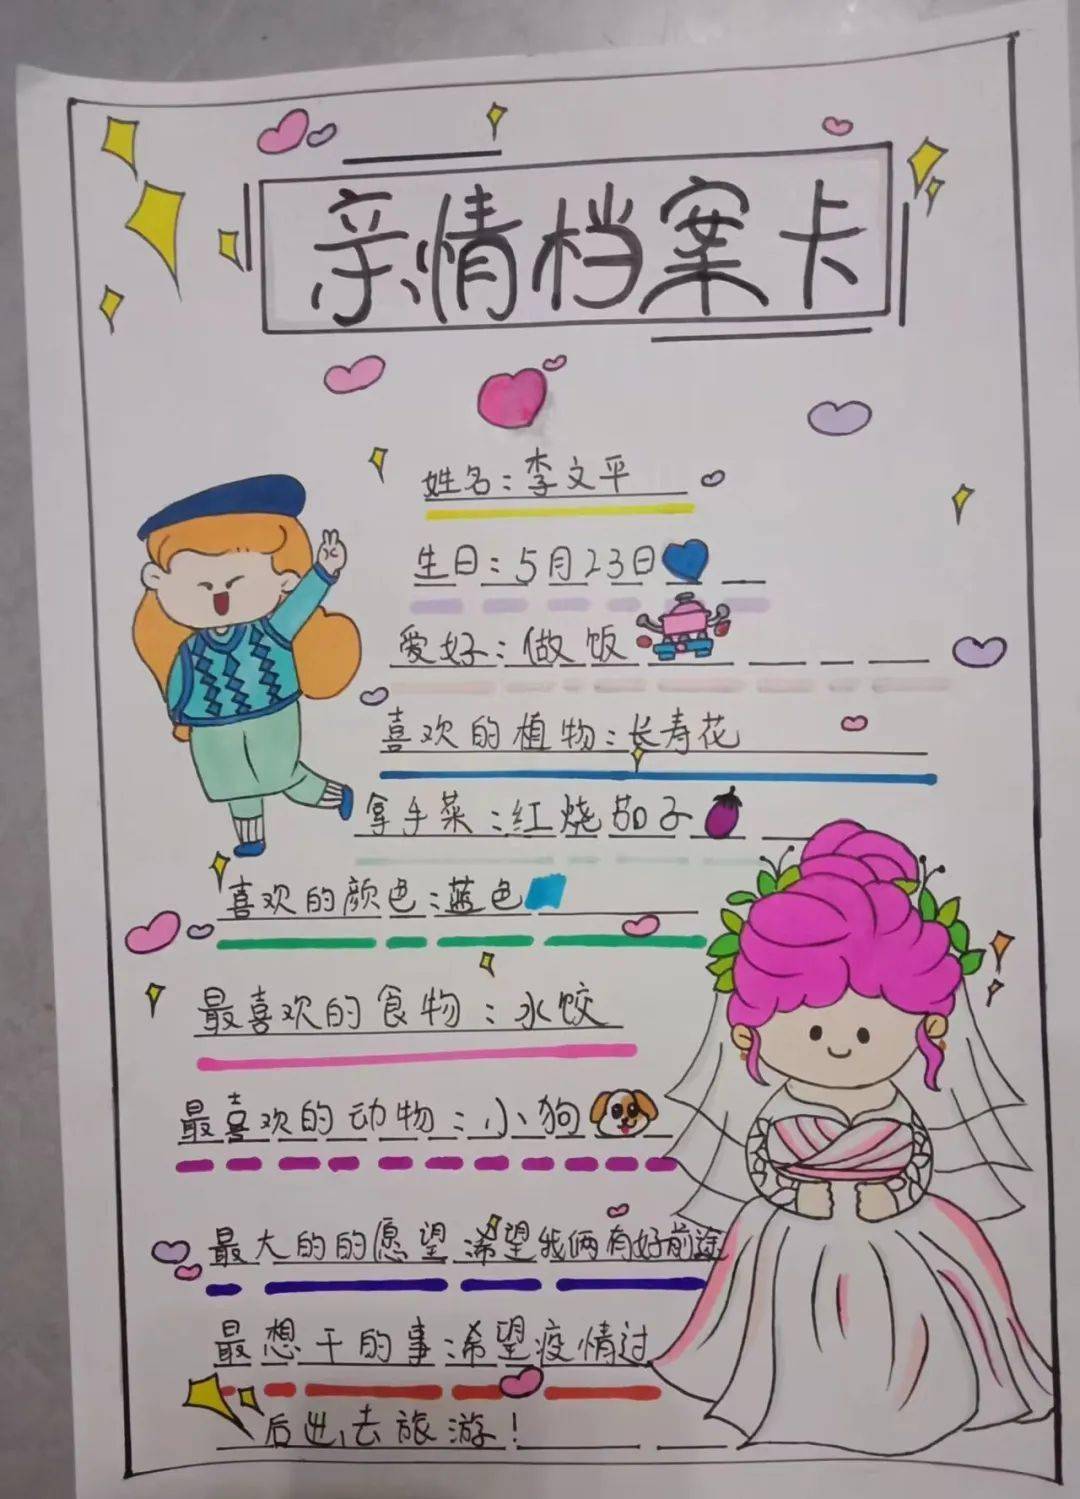 亲情档案卡
姓名：李文平
生日：5月23日
爱好：做饭
喜欢的植物：长寿花
拿手菜：红烧茄子
喜欢的颜色：蓝色
最喜欢的食物：水饺
最喜欢的动物：小狗
最大的的愿望 希望我俩有好前途
最想干的事：希望疫情过
后出去旅游！